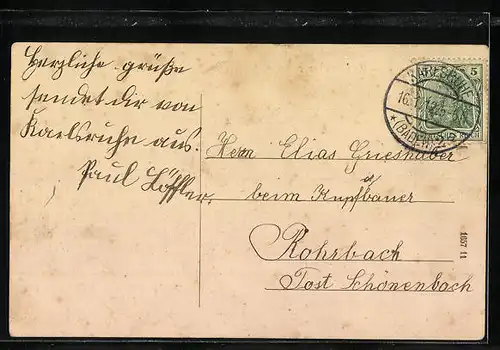 Herzliche grüße
sendet dir von
Karlsruhe aus.
Paul Löffler.
KARLSRUHE
(BADEN)
5
Herrn Elias Grieshaber
beim Kupfbauer
Rohrbach
Post Schönenbach
1057 11